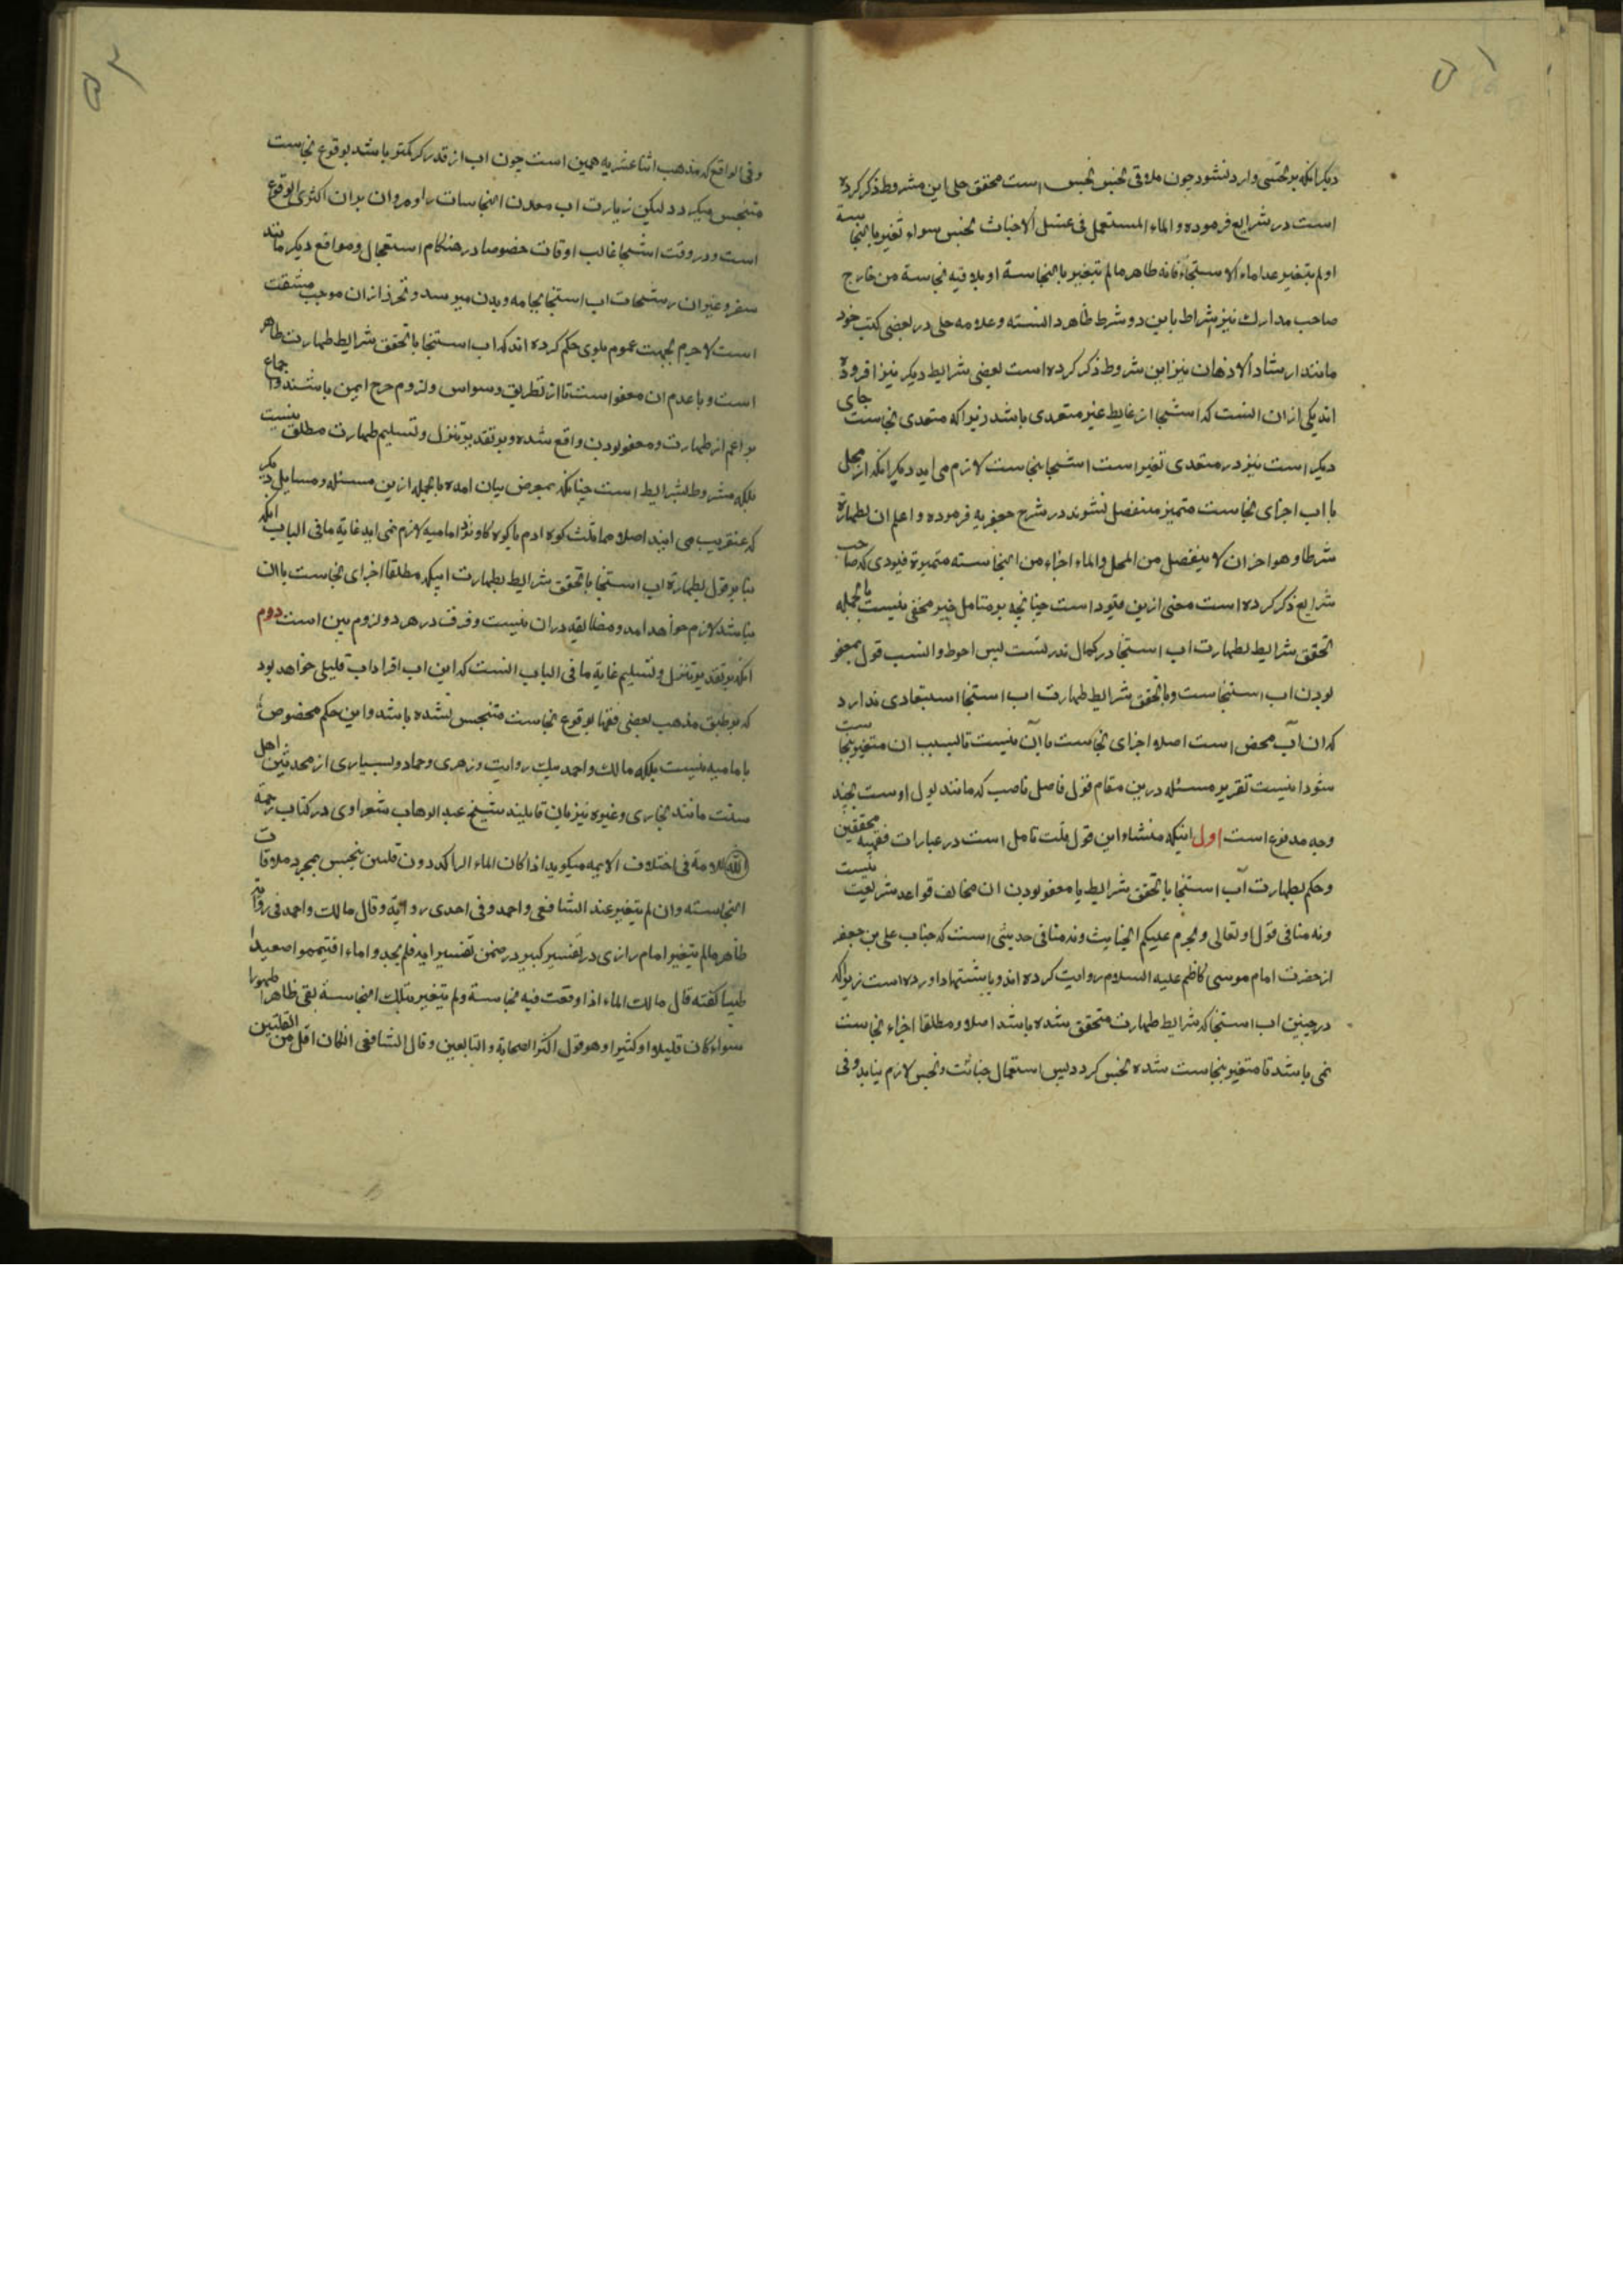 ۵۱
دیکر انکه بر نجسی وارد نشود چون ملاقی نجس نجس است محقق حلی این شروط ذکر کرده
است در شرایع فرموده و الماء المستعمل فی غسل الاخباث نجس سواء تغیر بالنجاسة
او لم یتغیر عدا ماء الاستنجاء فانه طاهر ما لم یتغیر بالنجاسة او یلاقیه نجاسة من خارج
صاحب مدارک نیز اشراط باین دو شرط ظاهر دانسته و علامه حلی در بعضی کتب خود
مانند ارشاد الاذهان نیز این شروط ذکر کرده است بعضی شرایط دیکر نیز افزوده
اند یکی ازان انست که استنجا از غایط غیر متعدی باشد زیرا که متعدی نجاست جای
دیکر است نیز در متعدی تغیر است استنجا بنجاست لازم می اید دیکر انکه از محل
با اب اجزای نجاست متمیز منفصل نشوند در شرح جعفریه فرموده و اعلم ان لطهارة
شرطا و هو اخر ان لا ینفصل من المحل و الماء اجزاء من النجاسته متمیزة قیودی که صاحب
شرایع ذکر کرده است مغنی ازین قیود است چنانچه بر متامل خبیر مخفی نیست بالجمله
تحقق شرایط طهارت اب استنجا در کمال ندرتست پس احوط و انسب قول بعفو
بودن اب استنجاست و با تحقق شرایط طهارت اب استنجا استبعادی ندارد
که ان آب محض است اصلا اجزای نجاست با آن نیست تا بسبب ان متغیر بنجاست
شود انیست تقریر مسئله درین مقام قول فاضل ناصب که مانند بول اوست بچند
وجه مدفوع است اول اینکه منشاء این قول قلت تامل است در عبارات فقهیه محققین
و حکم بطهارت آب استنجا با تحقق شرایط یا معفو بودن ان مخالف قواعد شریعت نیست
و نه منافی قول او تعالی و یحرم علیکم الخبایث و نه منافی حدیثی است که جناب علی بن جعفر
از حضرت امام موسی کاظم علیه السلام روایت کرده اند و باستشهاد اورده است زیرا که
در چنین اب استنجا که شرایط طهارت متحقق شده باشد اصلا و مطلقا اجزاء نجاست
نمی باشد تا متغیر بنجاست شده نجس کردد پس استعمال خباثت و نجس لازم نیاید و فی
۵۲
و فی الواقع که مذهب اثنا عشریه همین است چون اب از قدر کر کمتر باشد بوقوع نجاست
متنجس میکردد لیکن زیارت اب معدن النجاسات را و مروان بران اکثری الوقوع
است و در وقت استنجا غالب اوقات خصوصا در هنکام استعجال و مواقع دیکر مانند
سفر و غیر ان رشحات اب استنجا بجامه و بدن میرسد و تحرز ازان موجب مشقت
است لا جرم بجهت عموم بلوی حکم کرده اند که اب استنجا با تحقق شرایط طهارت طاهر
است و با عدم ان معفو است تا از تطریق وسواس و لزوم حرج ایمن باشند و اجماع
بر اعم از طهارت و معفو بودن واقع شده و بر تقدیر تنزل و تسلیم طهارت مطلق نیست
بلکه مشروط بشرایط است چنانکه بمعرض بیان امده بالجمله ازین مسئله و مسایل دیکر
که عنقریب می ایند اصلا مماثلت کوه ادم با کوه کاو نزد امامیه لازم نمی اید غایة ما فی الباب انکه
بنا بر قول بطهارة اب استنجا با تحقق شرایط بطهارت ابیکه مطلقا اجزای نجاست با ان
نباشد لازم خواهد امد و مضایقه در ان نیست و فرق در هر دو لزوم بین است دوم
انکه بر تقدیر تنزل و تسلیم غایة ما فی الباب انست که این اب افراد اب قلیلی خواهد بود
که بر طبق مذهب بعضی فقها بوقوع نجاست متنجس نشده باشد و این حکم مخصوص
بامامیه نیست بلکه مالک و احمد بیک روایت و زهری و حماد و بسیاری از محدثین اهل
سنت مانند بخاری و غیره نیز بان قایلند شیخ عبد الوهاب شعراوی در کتاب رحمة
الامة فی اختلاف الایمه میکوید اذا کان الماء الراکد دون قلتین ینجس بمجرد ملاقات
النجاسته و ان لم یتغیر عند الشافعی و احمد و فی احدی روایته و قال مالک و احمد فی روایة
طاهر ما لم یتغیر امام رازی در تفسیر کبیر در ضمن تفسیر ایه فلم تجدوا ماء افتیمموا صعیدا
طیبا کفته قال مالک الماء اذا وقعت فیه نجاسة و لم یتغیر بتلک النجاسة بقی طاهرا طهورا
سواء کان قلیلا او کثیرا و هو قول اکثر الصحابة و التابعین و قال الشافعی ان کان اقل من القلتین